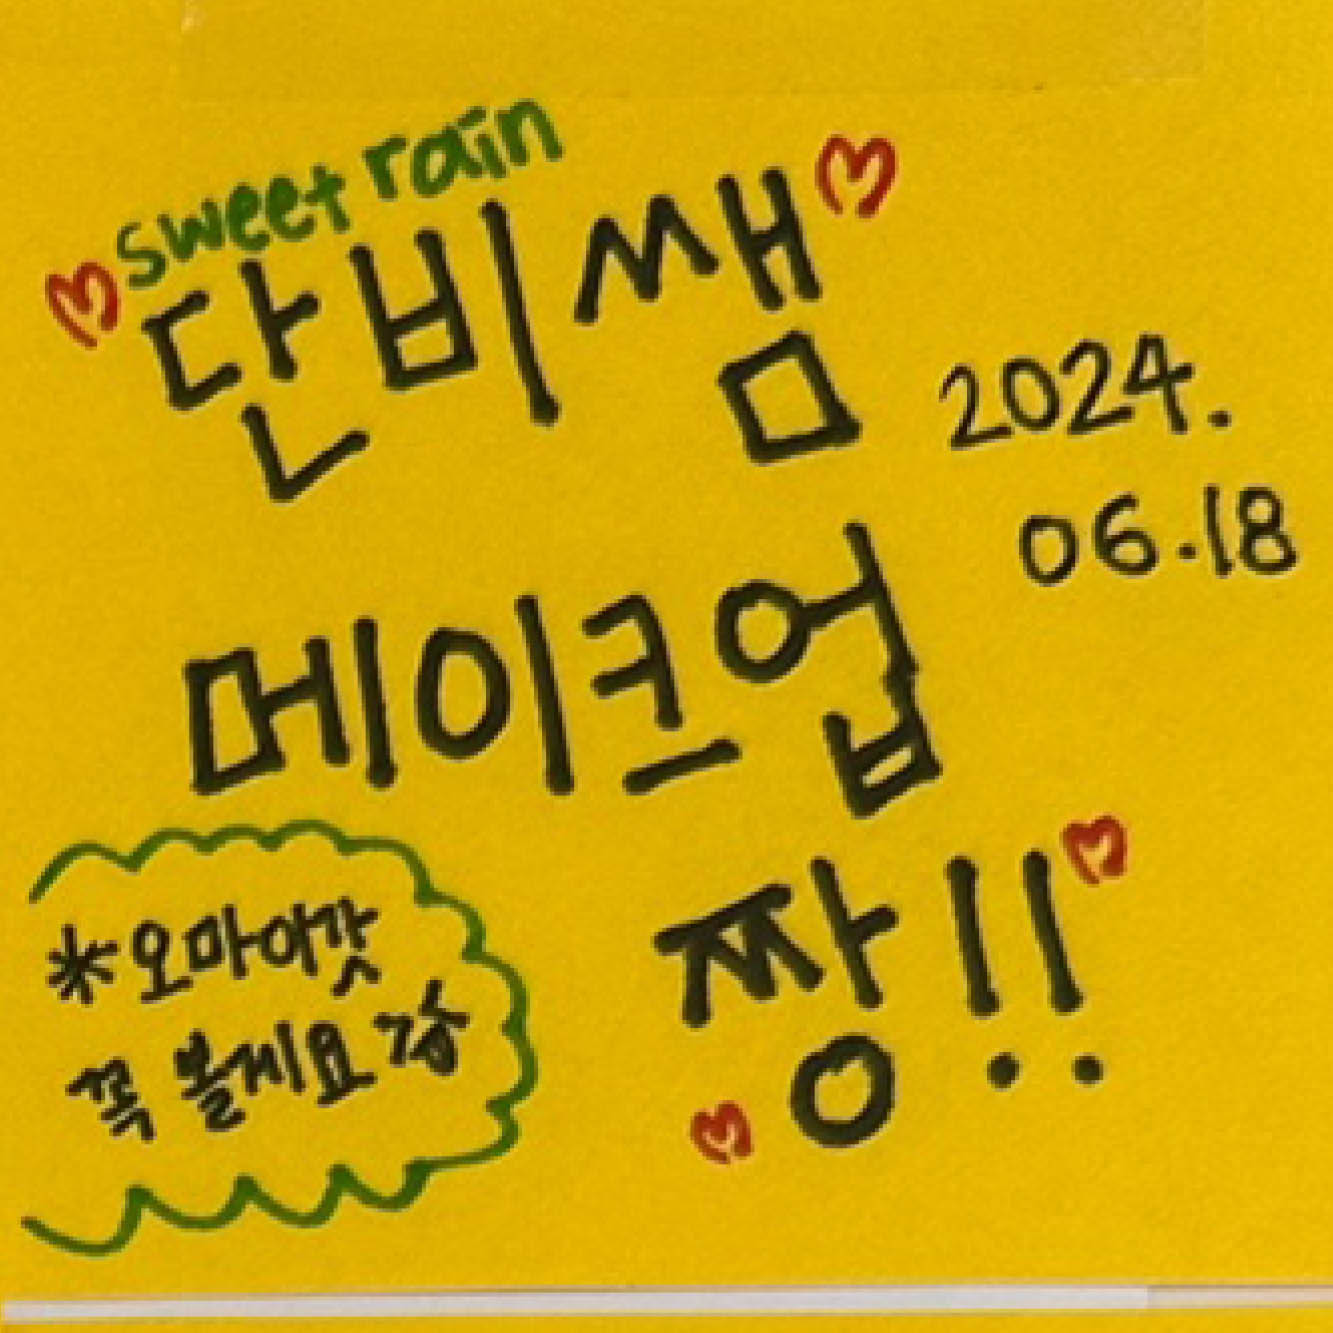 sweet rain
단비쌤
2024.
06.18
메이크업
짱!!
*오마이갓
꼭 볼게요